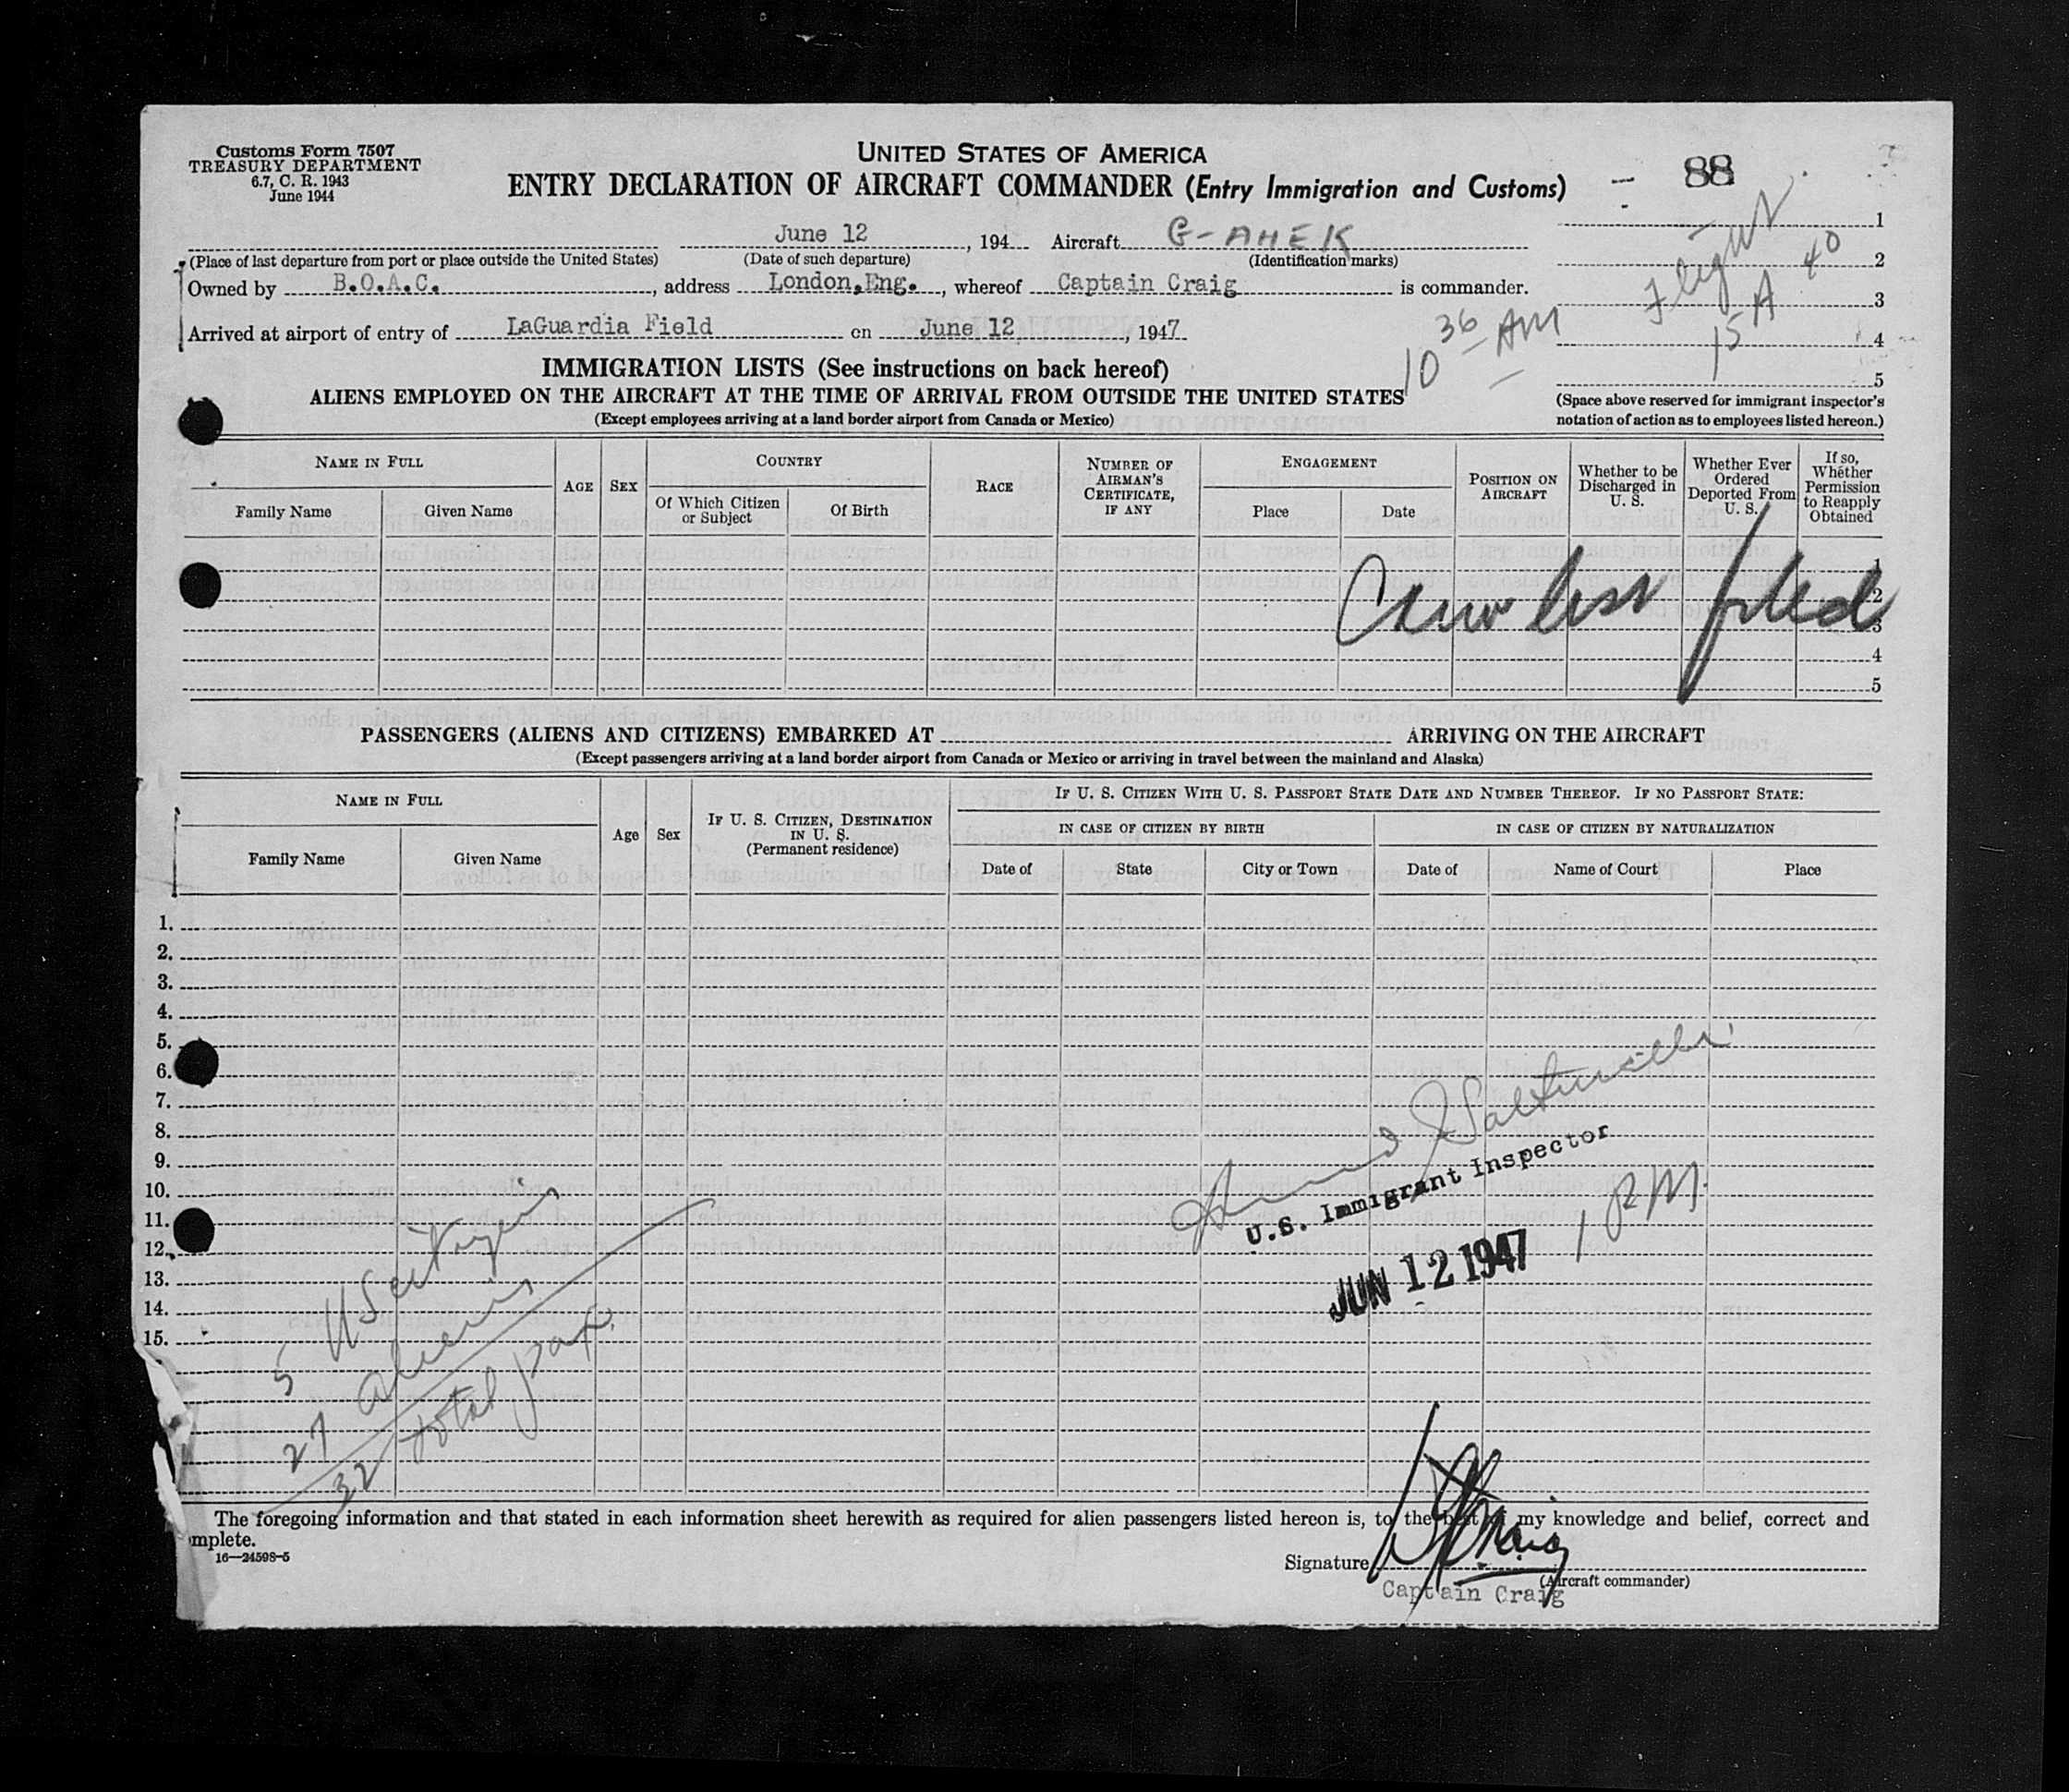 Customs Form 7507
TREASURY DEPARTMENT
6.7, C. R. 1943
June 1944
UNITED STATES OF AMERICA
ENTRY DECLARATION OF AIRCRAFT COMMANDER (Entry Immigration and Customs)
88
June 12, 194 Aircraft G-AHEK
(Place of last departure from port or place outside the United States) (Date of such departure) (Identification marks)
Owned by B.O.A.C., address London,Eng., whereof Captain Craig is commander.
Arrived at airport of entry of LaGuardia Field on June 12, 1947
10 36 AM
Flight
15 A 40
1
2
3
4
5
(Space above reserved for immigrant inspector's
notation of action as to employees listed hereon.)
IMMIGRATION LISTS (See instructions on back hereof)
ALIENS EMPLOYED ON THE AIRCRAFT AT THE TIME OF ARRIVAL FROM OUTSIDE THE UNITED STATES
(Except employees arriving at a land border airport from Canada or Mexico)
NAME IN FULL
Family Name Given Name
AGE SEX
COUNTRY
Of Which Citizen or Subject Of Birth
RACE
NUMBER OF AIRMAN'S CERTIFICATE, IF ANY
ENGAGEMENT
Place Date
POSITION ON AIRCRAFT
Whether to be Discharged in U. S.
Whether Ever Ordered Deported From U. S.
If so, Whether Permission to Reapply Obtained
1
2
3
4
5
Crew list filed
PASSENGERS (ALIENS AND CITIZENS) EMBARKED AT ARRIVING ON THE AIRCRAFT
(Except passengers arriving at a land border airport from Canada or Mexico or arriving in travel between the mainland and Alaska)
NAME IN FULL
Family Name Given Name
Age Sex
IF U. S. CITIZEN, DESTINATION IN U. S. (Permanent residence)
IF U. S. CITIZEN WITH U. S. PASSPORT STATE DATE AND NUMBER THEREOF. IF NO PASSPORT STATE:
IN CASE OF CITIZEN BY BIRTH IN CASE OF CITIZEN BY NATURALIZATION
Date of State City or Town Date of Name of Court Place
1.
2.
3.
4.
5.
6.
7.
8.
9.
10.
11.
12.
13.
14.
15.
U.S. Immigrant Inspector
JUN 12 1947
1 PM.
5 US citizens
27 aliens
32 total pax.
The foregoing information and that stated in each information sheet herewith as required for alien passengers listed hereon is, to the my knowledge and belief, correct and
mplete.
16—24598-5
Signature Craig
(Aircraft commander)
Captain Craig